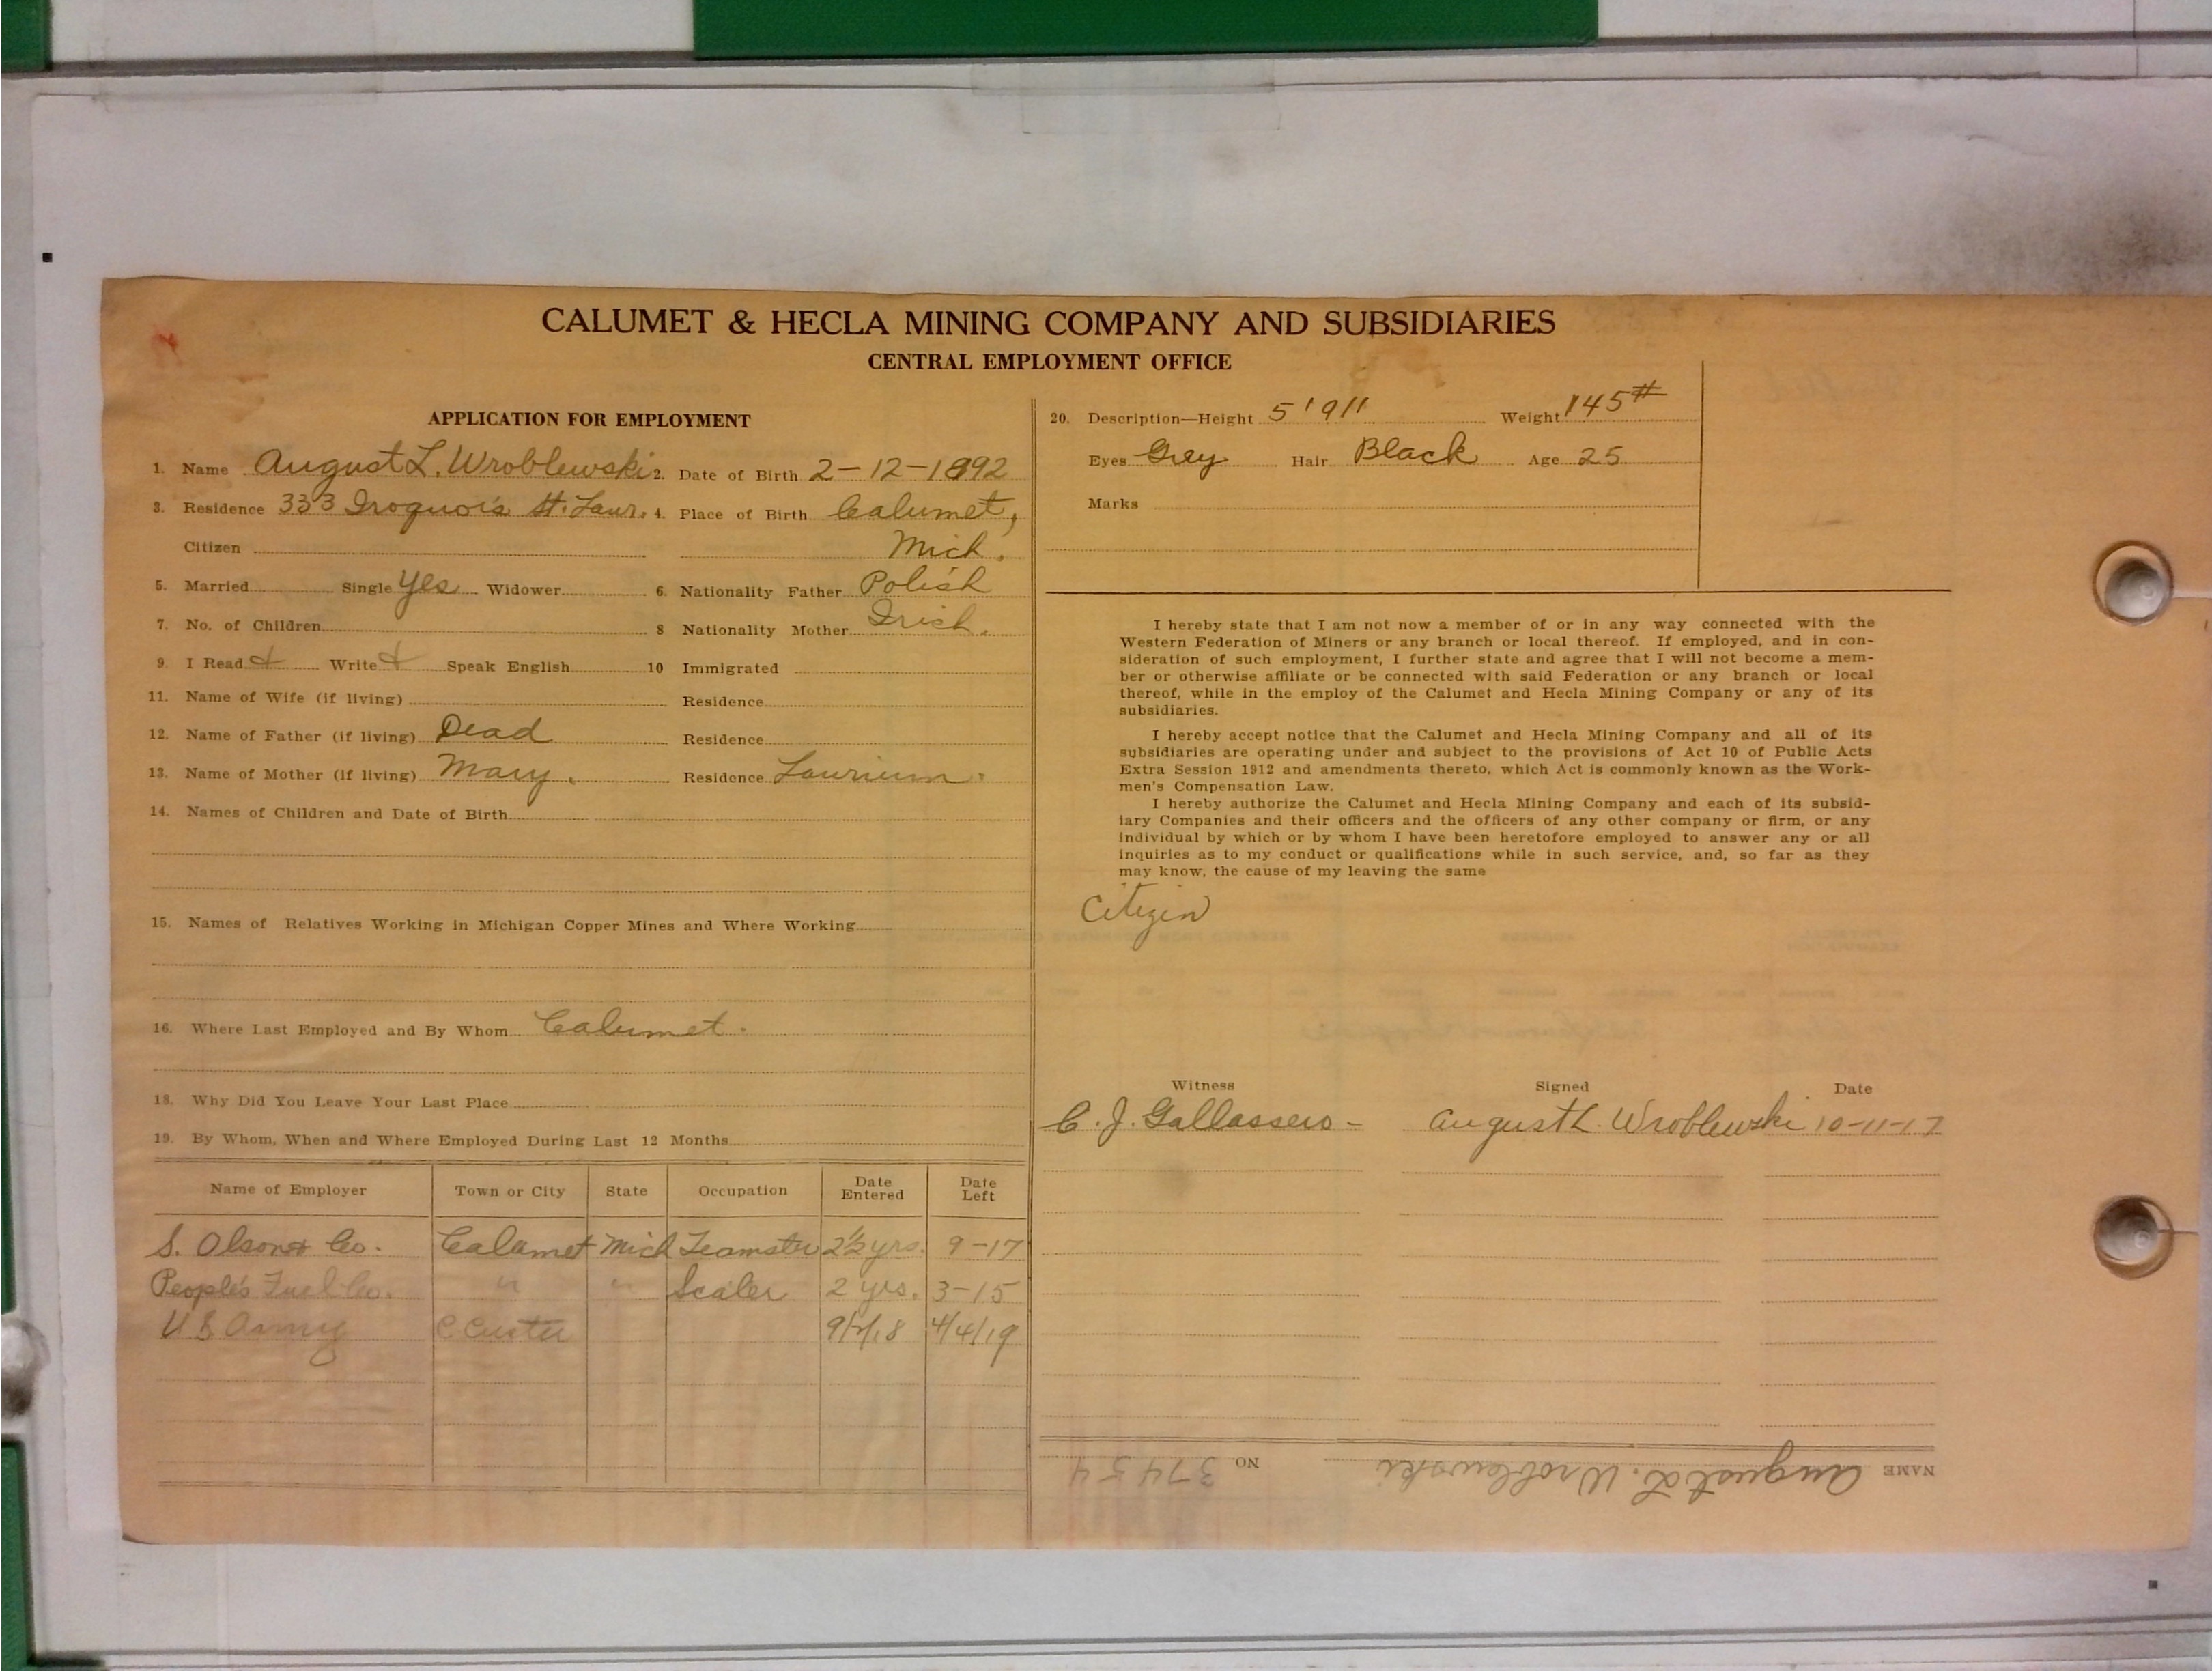 CALUMET & HECLA MINING COMPANY AND SUBSIDIARIES
CENTRAL EMPLOYMENT OFFICE
APPLICATION FOR EMPLOYMENT
1. Name August L. Wroblewski 2. Date of Birth 2-12-1892
3. Residence 333 Iroquois St. Laur. 4. Place of Birth Calumet,
Citizen Mich.
5. Married Single Yes Widower 6. Nationality Father Polish
7. No. of Children 8 Nationality Mother Irish.
9. I Read Write Speak English 10 Immigrated
11. Name of Wife (if living) Residence
12. Name of Father (if living) Dead Residence
13. Name of Mother (if living) Mary. Residence Laurium.
14. Names of Children and Date of Birth
15. Names of Relatives Working in Michigan Copper Mines and Where Working
16. Where Last Employed and By Whom Calumet.
18. Why Did You Leave Your Last Place
19. By Whom, When and Where Employed During Last 12 Months
Name of Employer Town or City State Occupation Date Entered Date Left
S. Olson Co. Calumet Mich Teamster 2½ yrs. 9-17
People's Fuel Co. " " Scaler 2 yrs. 3-15
U S Army C Custer 4/4/19
20. Description—Height 5'9" Weight 145#
Eyes Grey Hair Black Age 25
Marks
I hereby state that I am not now a member of or in any way connected with the
Western Federation of Miners or any branch or local thereof. If employed, and in con-
sideration of such employment, I further state and agree that I will not become a mem-
ber or otherwise affiliate or be connected with said Federation or any branch or local
thereof, while in the employ of the Calumet and Hecla Mining Company or any of its
subsidiaries.
I hereby accept notice that the Calumet and Hecla Mining Company and all of its
subsidiaries are operating under and subject to the provisions of Act 10 of Public Acts
Extra Session 1912 and amendments thereto, which Act is commonly known as the Work-
men's Compensation Law.
I hereby authorize the Calumet and Hecla Mining Company and each of its subsid-
iary Companies and their officers and the officers of any other company or firm, or any
individual by which or by whom I have been heretofore employed to answer any or all
inquiries as to my conduct or qualifications while in such service, and, so far as they
may know, the cause of my leaving the same
Citizen
Witness Signed Date
C. J. Gallassero - August L. Wroblewski 10-11-17
NAME August L. Wroblewski NO 37454